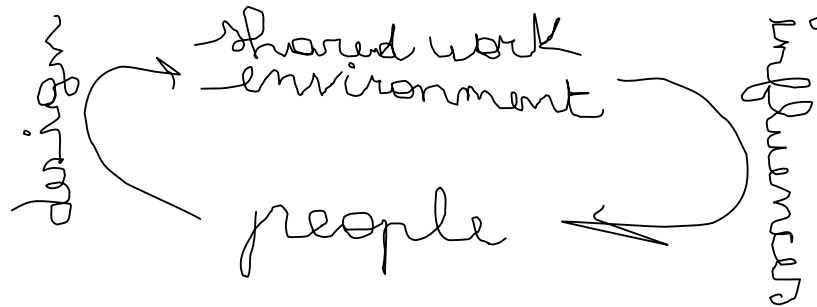 shared work
environment
people
influences